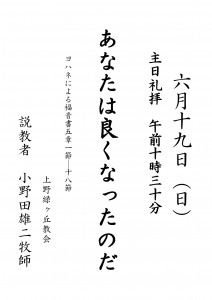 六月十九日（日）
主日礼拝　午前十時三十分
あなたは良くなったのだ
ヨハネによる福音書五章一節―十八節
上野緑ヶ丘教会
説教者　小野田雄二牧師